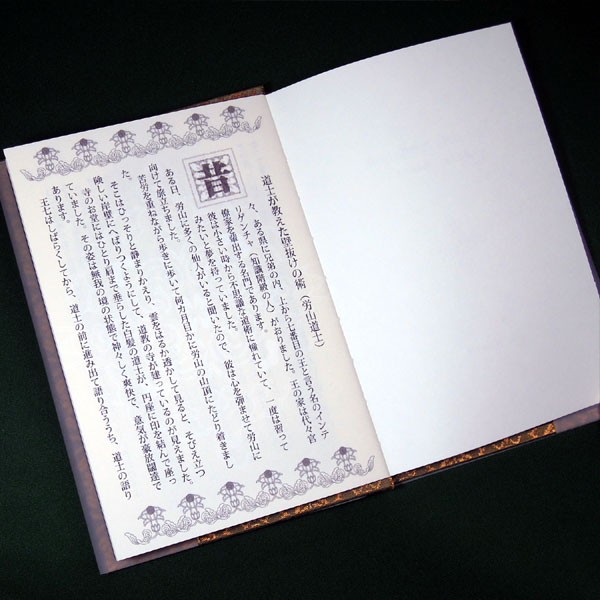 道士が教えた壁抜けの術（労山道士）
昔
々、ある県に兄弟の内、上から七番目の王と言う名のインテ
リゲンチャ（知識階級の人）がおりました。王の家は代々官
僚家を輩出する名門であります。
彼は小さい時から不思議な道術に憧れていて、一度は習って
みたいと夢を持っていました。
ある日、労山に多くの仙人がいると聞いたので、彼は心を弾ませて労山に
向けて旅立ちました。
苦労を重ねながら歩きに歩いて何カ月目かに労山の山頂にたどり着きまし
た。
そこはひっそりと静まりかえり、雲をはるか透かして見ると、そびえ立つ
険しい岸壁にへばりつくようにして、道教の寺が建っているのが見えました。
寺のお堂にはひとり肩まで垂らした白髪の道士が、円座に印を結んで座っ
ていました。その姿は無我の境の状態で神々しく爽快で、意気が豪放闊達で
あります。
王七はしばらくしてから、道士の前に進み出て語り合ううち、道士の語り